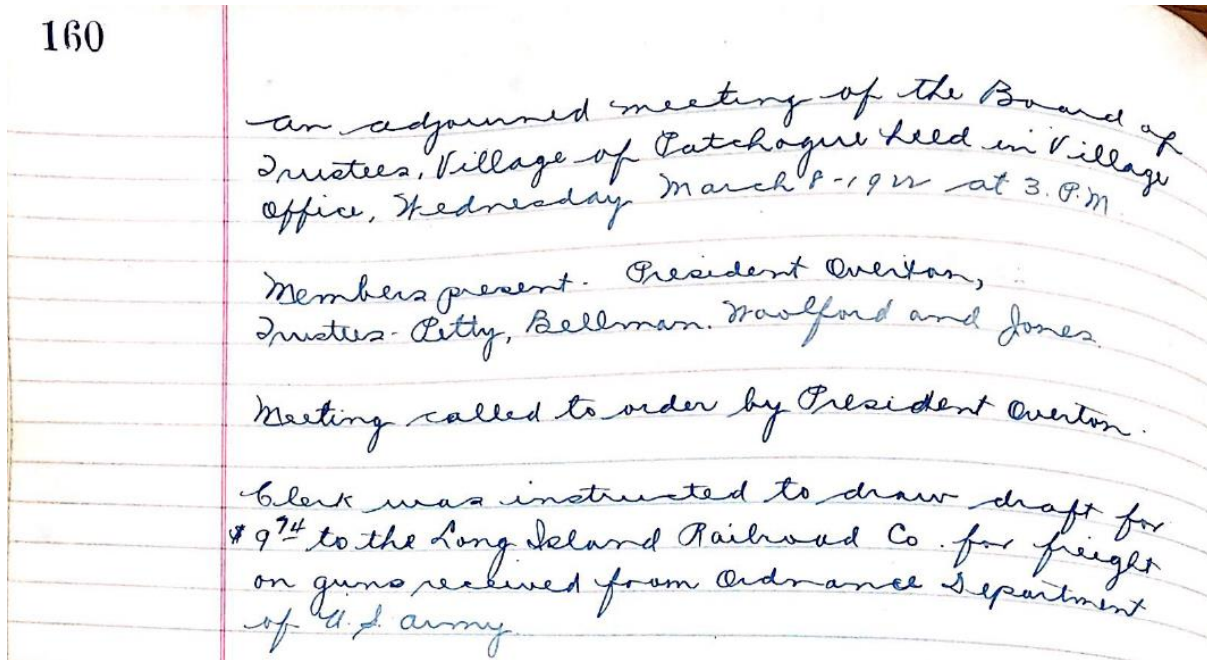 160
An adjourned meeting of the Board of
Trustees, Village of Patchogue held in Village
Office, Wednesday March 8-1922 at 3. P.M.
Members present. President Overton,
Trustees-Petty, Bellman. Woolford and Jones.
Meeting called to order by President Overton.
Clerk was instructed to draw draft for
$9 74 to the Long Island Railroad Co. for freight
on guns received from Ordnance Department
of U.S. Army